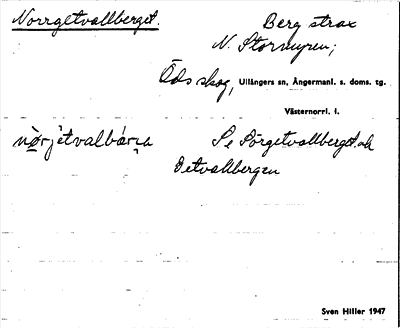 Norrgetvallberget. Berg strax
N. Stormyren;
Öds skog, Ullångers sn, Ångermanl. s. doms. tg.
Västernorrl. l.
nòrjetvalbárja Se Sörgetvallberget och
Getvallbergen
Sven Hiller 1947